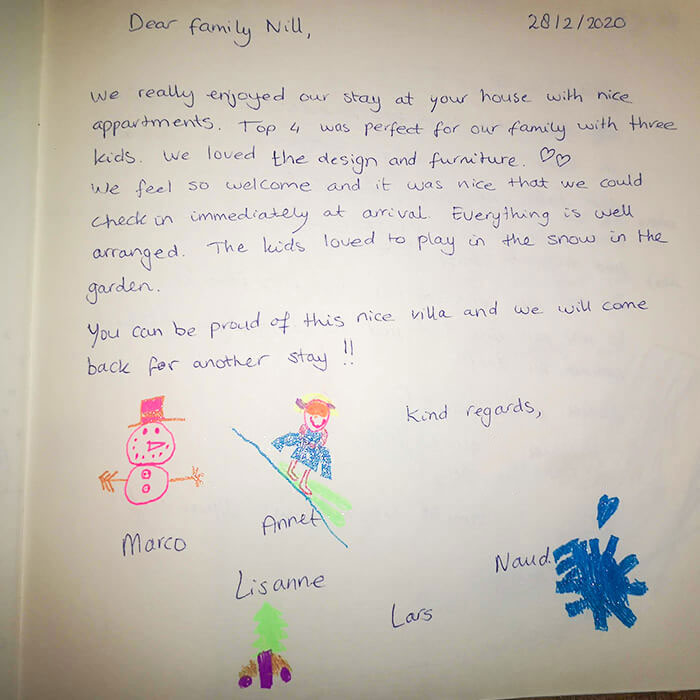 Dear family Nill, 28/2/2020
We really enjoyed our stay at your house with nice
appartments. Top 4 was perfect for our family with three
kids. We loved the design and furniture. ♡♡
We feel so welcome and it was nice that we could
check in immediately at arrival. Everything is well
arranged. The kids loved to play in the snow in the
garden.
You can be proud of this nice villa and we will come
back for another stay !!
Kind regards,
Marco
Annet
Lisanne
Lars
Naud.